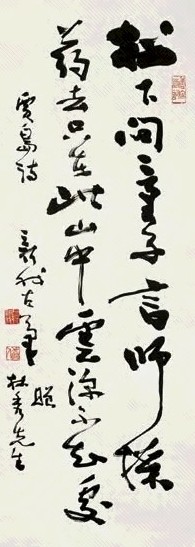 松下問童子言師採
藥去只在此山中雲深不知處
賈島詩
新我左筆
林秀先生